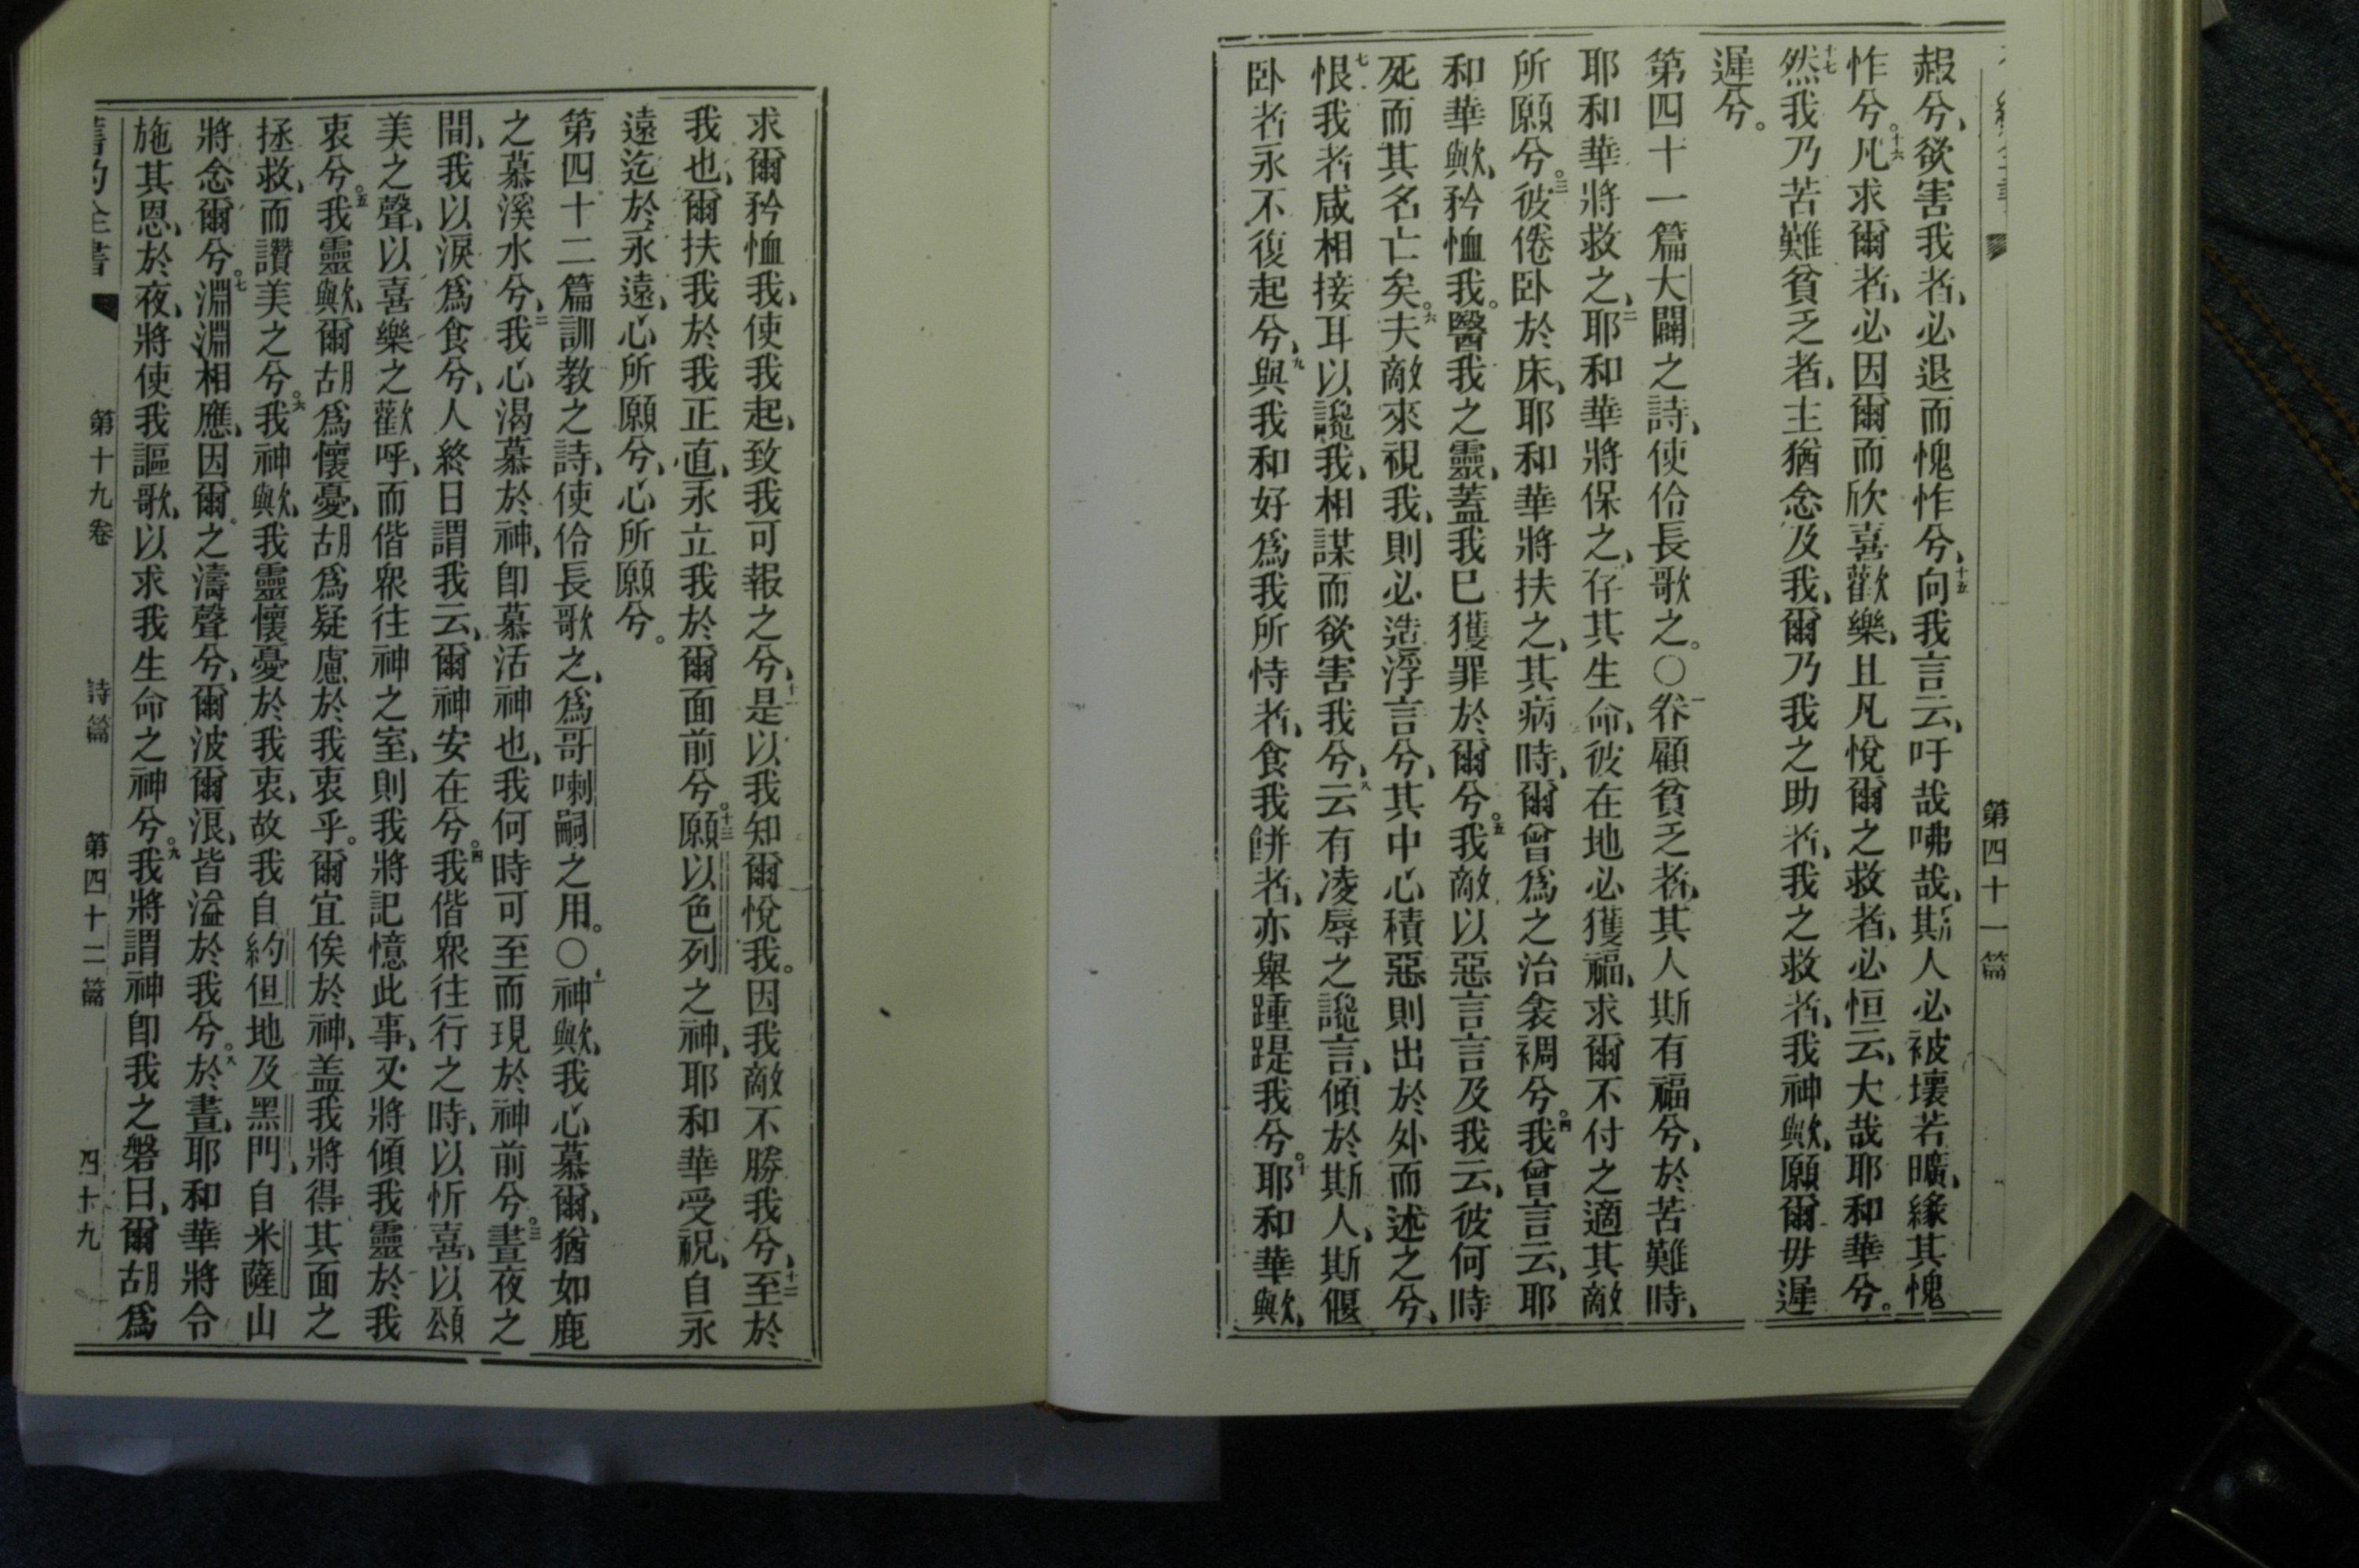 第四十一篇
赧兮、欲害我者、必退而愧怍兮、十五向我言云、吁哉咈哉、斯人必被壞若曠、緣其愧
怍兮。十六凡求爾者、必因爾而欣喜歡樂、且凡悅爾之救者、必恒云、大哉耶和華兮。
十七然我乃苦難貧乏者、主猶念及我、爾乃我之助者、我之救者、我神歟、願爾毋遲
遲兮。
第四十一篇大闢之詩、使伶長歌之。〇一眷顧貧乏者、其人斯有福兮、於苦難時、
耶和華將救之、二耶和華將保之、存其生命、彼在地必獲福、求爾不付之適其敵
所願兮。三彼倦卧於床、耶和華將扶之、其病時、爾曾爲之治衾裯兮。四我曾言云、耶
和華歟、矜恤我。醫我之靈、蓋我已獲罪於爾兮。五我敵以惡言言及我云、彼何時
死而其名亡矣。六夫敵來視我、則必造浮言兮、其中心積惡則出於外而述之兮、
七恨我者咸相接耳以讒我、相謀而欲害我兮、八云有凌辱之讒言、傾於斯人、斯偃
卧者永不復起兮、九與我和好爲我所恃者、食我餅者、亦舉踵踶我兮。十耶和華歟、
求爾矜恤我、使我起、致我可報之兮、十一是以我知爾悅我。因我敵不勝我兮、十二至於
我也、爾扶我於我正直、永立我於爾面前兮。十三願以色列之神、耶和華受祝、自永
遠迄於永遠、心所願兮、心所願兮。
第四十二篇訓教之詩、使伶長歌之、爲哥喇嗣之用。〇一神歟、我心慕爾、猶如鹿
之慕溪水兮、二我心渴慕於神、卽慕活神也、我何時可至而現於神前兮。三晝夜之
間、我以淚爲食兮、人終日謂我云、爾神安在兮。四我偕衆往行之時、以忻喜、以頌
美之聲、以喜樂之歡呼、而偕衆往神之室、則我將記憶此事、又將傾我靈於我
衷兮。五我靈歟、爾胡爲懷憂、胡爲疑慮於我衷乎。爾宜俟於神、盖我將得其面之
拯救、而讚美之兮。六我神歟、我靈懷憂於我衷、故我自約但地及黑門、自米薩山
將念爾兮。七淵淵相應、因爾之濤聲兮、爾波爾浪、皆溢於我兮。八於晝、耶和華將令
施其恩、於夜、將使我謳歌、以求我生命之神兮。九我將謂神卽我之磐曰、爾胡爲
舊約全書 第十九卷 詩篇 第四十二篇 四十九